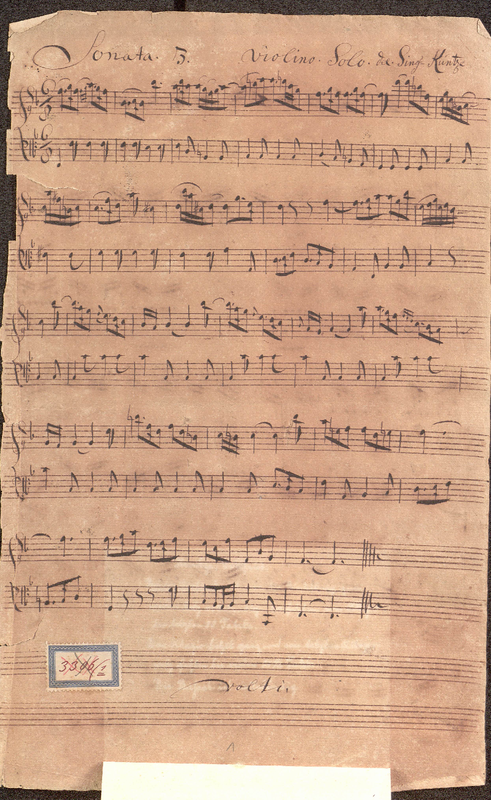 Sonata. 3. Violino. Solo. del Sing. Kuntze
6 8
6 8
3596/1
volti.
1